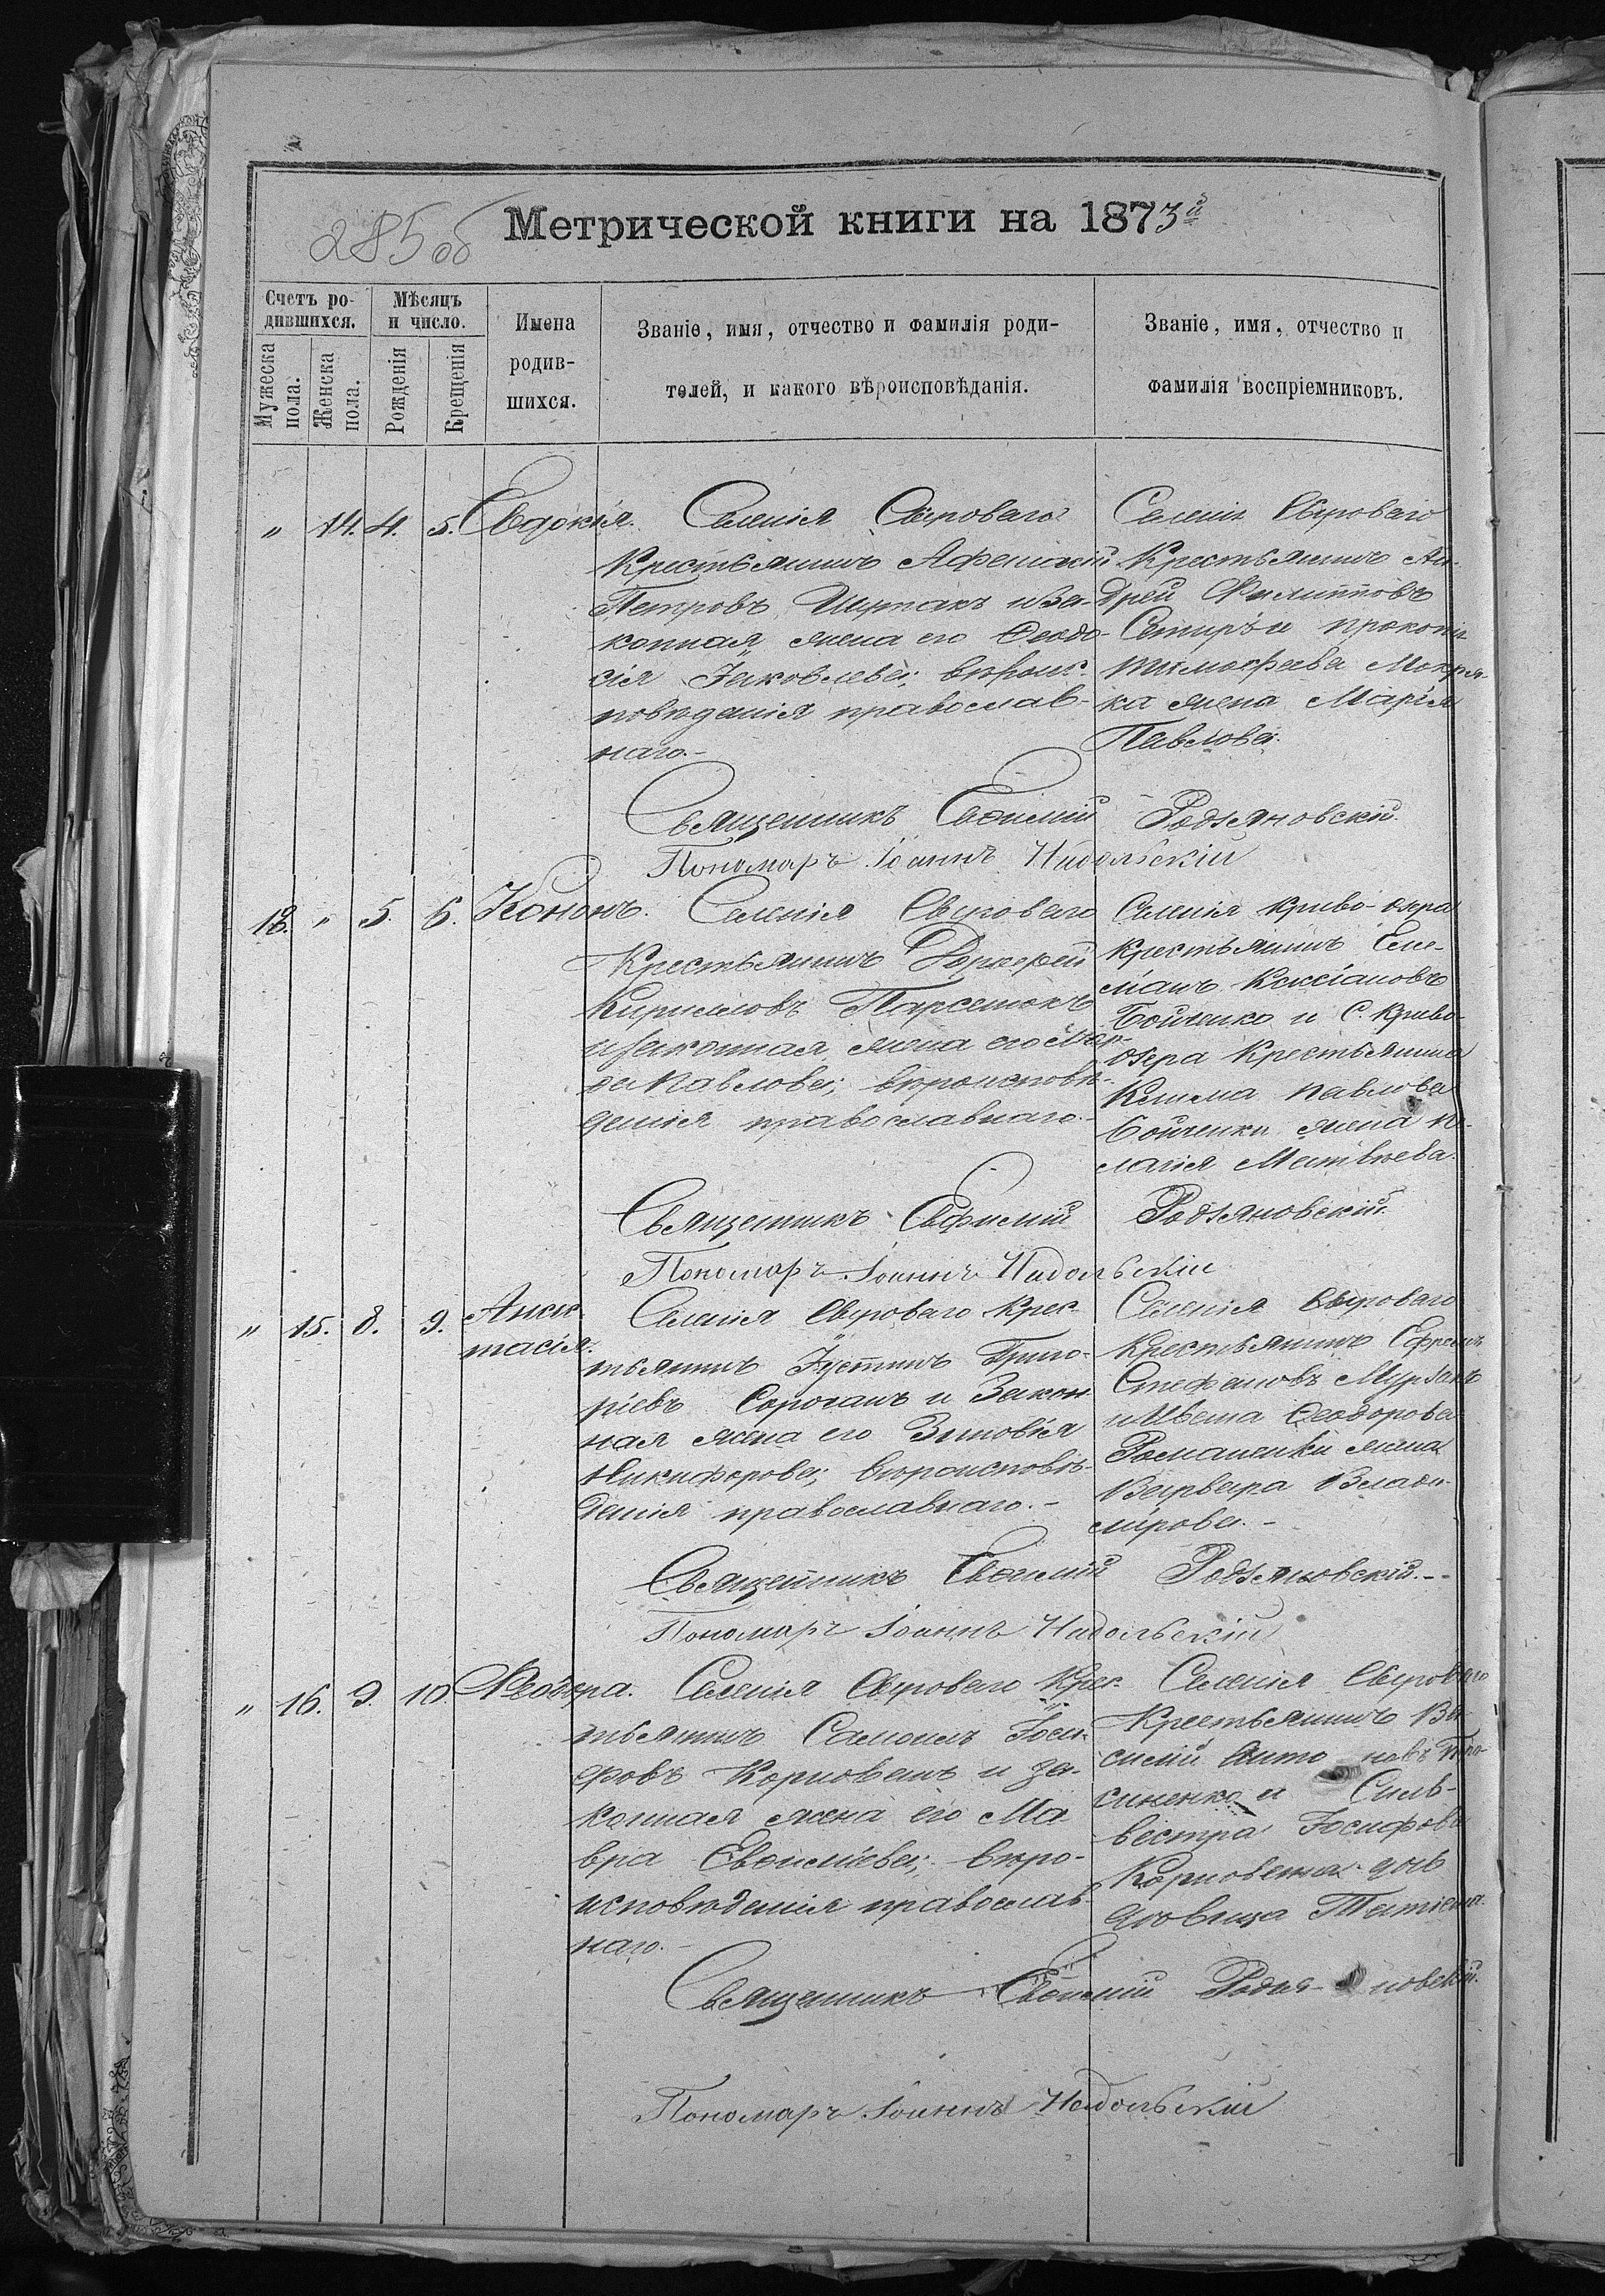 285 об
Метрической книги на 1873й
Счетъ ро-
дившихся.
Мѣсяцъ
и число.
Мужеска
пола.
Женска
пола.
Рожденія
Крещенія
Имена
родив-
шихся.
Званіе, имя, отчество и фамилія роди-
телей, и какого вѣроисповѣданія.
Званіе, имя, отчество и
фамилія воспріемниковъ.
" 14. 4. 5. Евдокія.
Селенія Сыроваго
Крестьянинъ Афанасій
Петровъ и За-
конная жена его Ѳеодо-
сія Іаковлева; вѣроис-
повѣданія православ-
наго.-
Селенія Сыроваго
Крестьянинъ Ан-
дрей Филипповъ
и Прокопія
Тимофеева Мокря-
ка жена Марія
Павлова.
Священникъ Евѳимій Родзяновскій.
Пономарь Іоаннъ Надольскій
13. " 5. 6. Кононъ.
Селенія Сыроваго
Крестьянинъ
Кирилловъ Парсенюкъ
и законная жена его Мар-
ѳа Павлова; вѣроисповѣ-
данія православнаго.-
Селенія Криво-озера
крестьянинъ Еме-
ліанъ Кассіановъ
Бойченко и С. Криво-
озера Крестьянина
Климa Павлова
Бойченки жена Пе-
лагія Матвѣева.
Священникъ Евфимій Родзяновскій.
Пономарь Іоаннъ Надольскій
" 15. 8. 9. Анас-
тасія.
Селенія Сыроваго Крес-
тьянинъ Іустинъ Григо-
ріевъ Сороганъ и Закон-
ная жена его Зиновія
Никифорова; вѣроисповѣ-
данія православнаго.-
Селенія Сыроваго
Крестьянинъ Ефремъ
Стефановъ Мурзакъ
и Ивана Ѳеодорова
Романенки жена
Варвара Влади-
мірова.-
Священникъ Евѳимій Родзяновскій.--
Пономарь Іоаннъ Надольскій
" 16. 9. 10. Ѳеодора.
Селенія Сыроваго Крес-
тьянинъ Самоилъ Іоси-
фовъ Корнованъ и за-
конная жена его Ма-
вра Евѳиміева; вѣро-
исповѣданія православ-
наго.-
Селенія Сыроваго
Крестьянинъ Ва-
силій Анто-новъ
и Силь-
вестра Іосифова
Корнована дочь
дѣвица Татіана.
Священникъ Евѳимій Родзя-новскій.
Пономарь Іоаннъ Надольскій